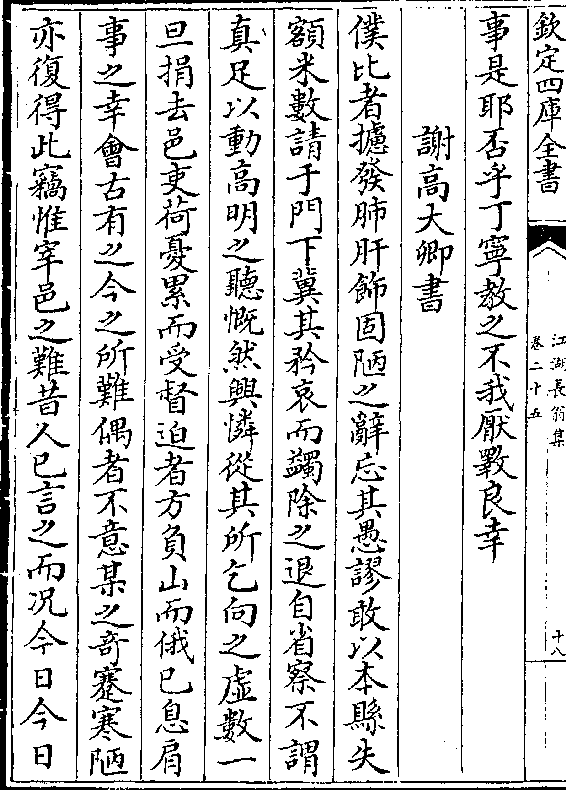 欽定四庫全書
江湖長翁集
卷二十五
十八
事是耶否乎丁寧教之不我厭斁良幸
謝高大卿書
僕比者攄發肺肝飾固陋之辭忘其愚謬敢以本縣失
額米數請于門下冀其矜哀而蠲除之退自省察不謂
真足以動高明之聽慨然興憐從其所乞向之虛數一
旦捐去邑吏荷憂累而受督迫者方負山而俄已息肩
事之幸會古有之今之所難偶者不意某之奇蹇寒陋
亦復得此竊惟宰邑之難昔人已言之而况今日今日